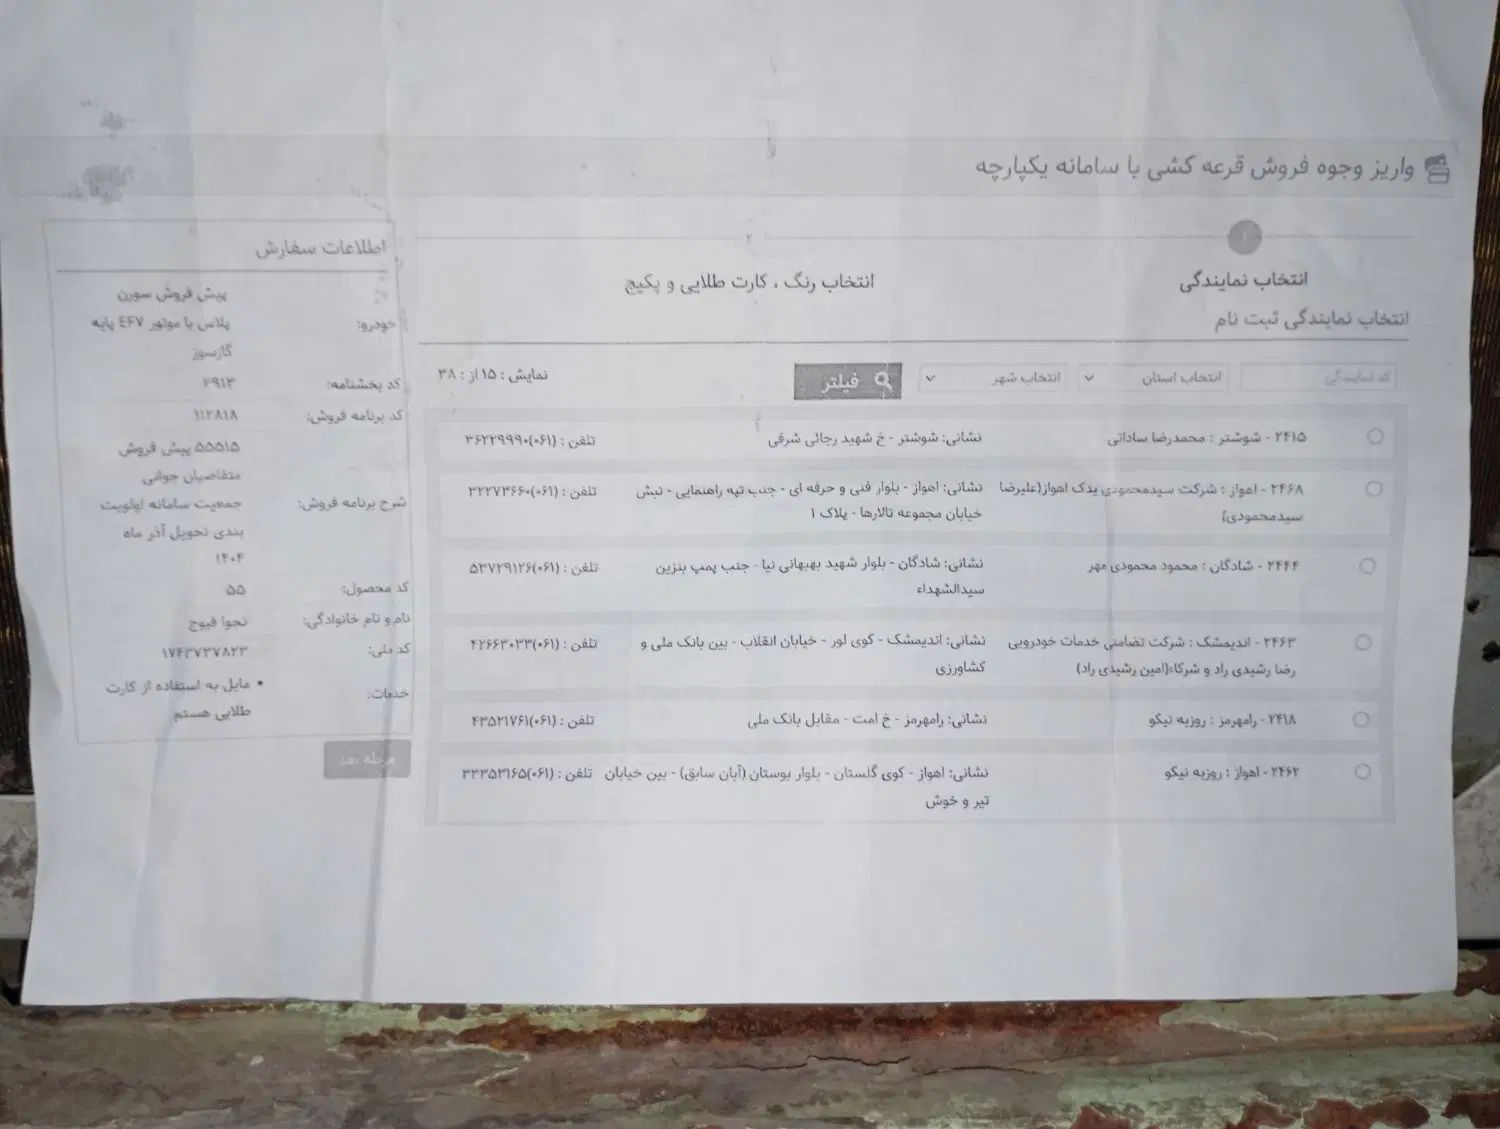 واریز وجوه فروش قرعه کشی با سامانه یکپارچه
۱
۲
انتخاب نمایندگی
انتخاب رنگ ، کارت طلایی و پکیج
انتخاب نمایندگی ثبت نام
کد نمایندگی
انتخاب استان
انتخاب شهر
فیلتر
نمایش : ۱۵ از : ۳۸
۲۴۱۵ - شوشتر : محمدرضا ساداتی
نشانی: شوشتر - خ شهید رجائی شرقی
تلفن : (۰۶۱)۳۶۲۲۹۹۹۰
۲۴۶۸ - اهواز : شرکت سیدمحمودی یدک اهواز(علیرضا
سیدمحمودی)
نشانی: اهواز - بلوار فنی و حرفه ای - جنب تپه راهنمایی - نبش
خیابان مجموعه تالارها - پلاک ۱
تلفن : (۰۶۱)۳۲۲۷۳۶۶۰
۲۴۴۴ - شادگان : محمود محمودی مهر
نشانی: شادگان - بلوار شهید بهبهانی نیا - جنب پمپ بنزین
سیدالشهداء
تلفن : (۰۶۱)۵۳۷۲۹۱۲۶
۲۴۶۳ - اندیمشک : شرکت تضامنی خدمات خودرویی
رضا رشیدی راد و شرکاء(امین رشیدی راد)
نشانی: اندیمشک - کوی لور - خیابان انقلاب - بین بانک ملی و
کشاورزی
تلفن : (۰۶۱)۴۲۶۶۳۰۳۳
۲۴۱۸ - رامهرمز : روزبه نیکو
نشانی: رامهرمز - خ امت - مقابل بانک ملی
تلفن : (۰۶۱)۴۳۵۲۱۷۶۱
۲۴۶۲ - اهواز : روزبه نیکو
نشانی: اهواز - کوی گلستان - بلوار بوستان (آبان سابق) - بین خیابان
تیر و خوش
تلفن : (۰۶۱)۳۳۳۵۳۱۶۵
اطلاعات سفارش
خودرو:
پیش فروش سورن
پلاس با موتور EF۷ پایه
گازسوز
کد بخشنامه:
۲۹۱۳
کد برنامه فروش:
۱۱۲۸۱۸
شرح برنامه فروش:
۵۵۵۱۵ پیش فروش
متقاضیان جوانی
جمعیت سامانه اولویت
بندی تحویل آذر ماه
۱۴۰۴
کد محصول:
۵۵
نام و نام خانوادگی:
نجوا فیوج
کد ملی:
۱۷۴۳۷۳۷۸۲۳
خدمات:
• مایل به استفاده از کارت
طلایی هستم
مرحله بعد